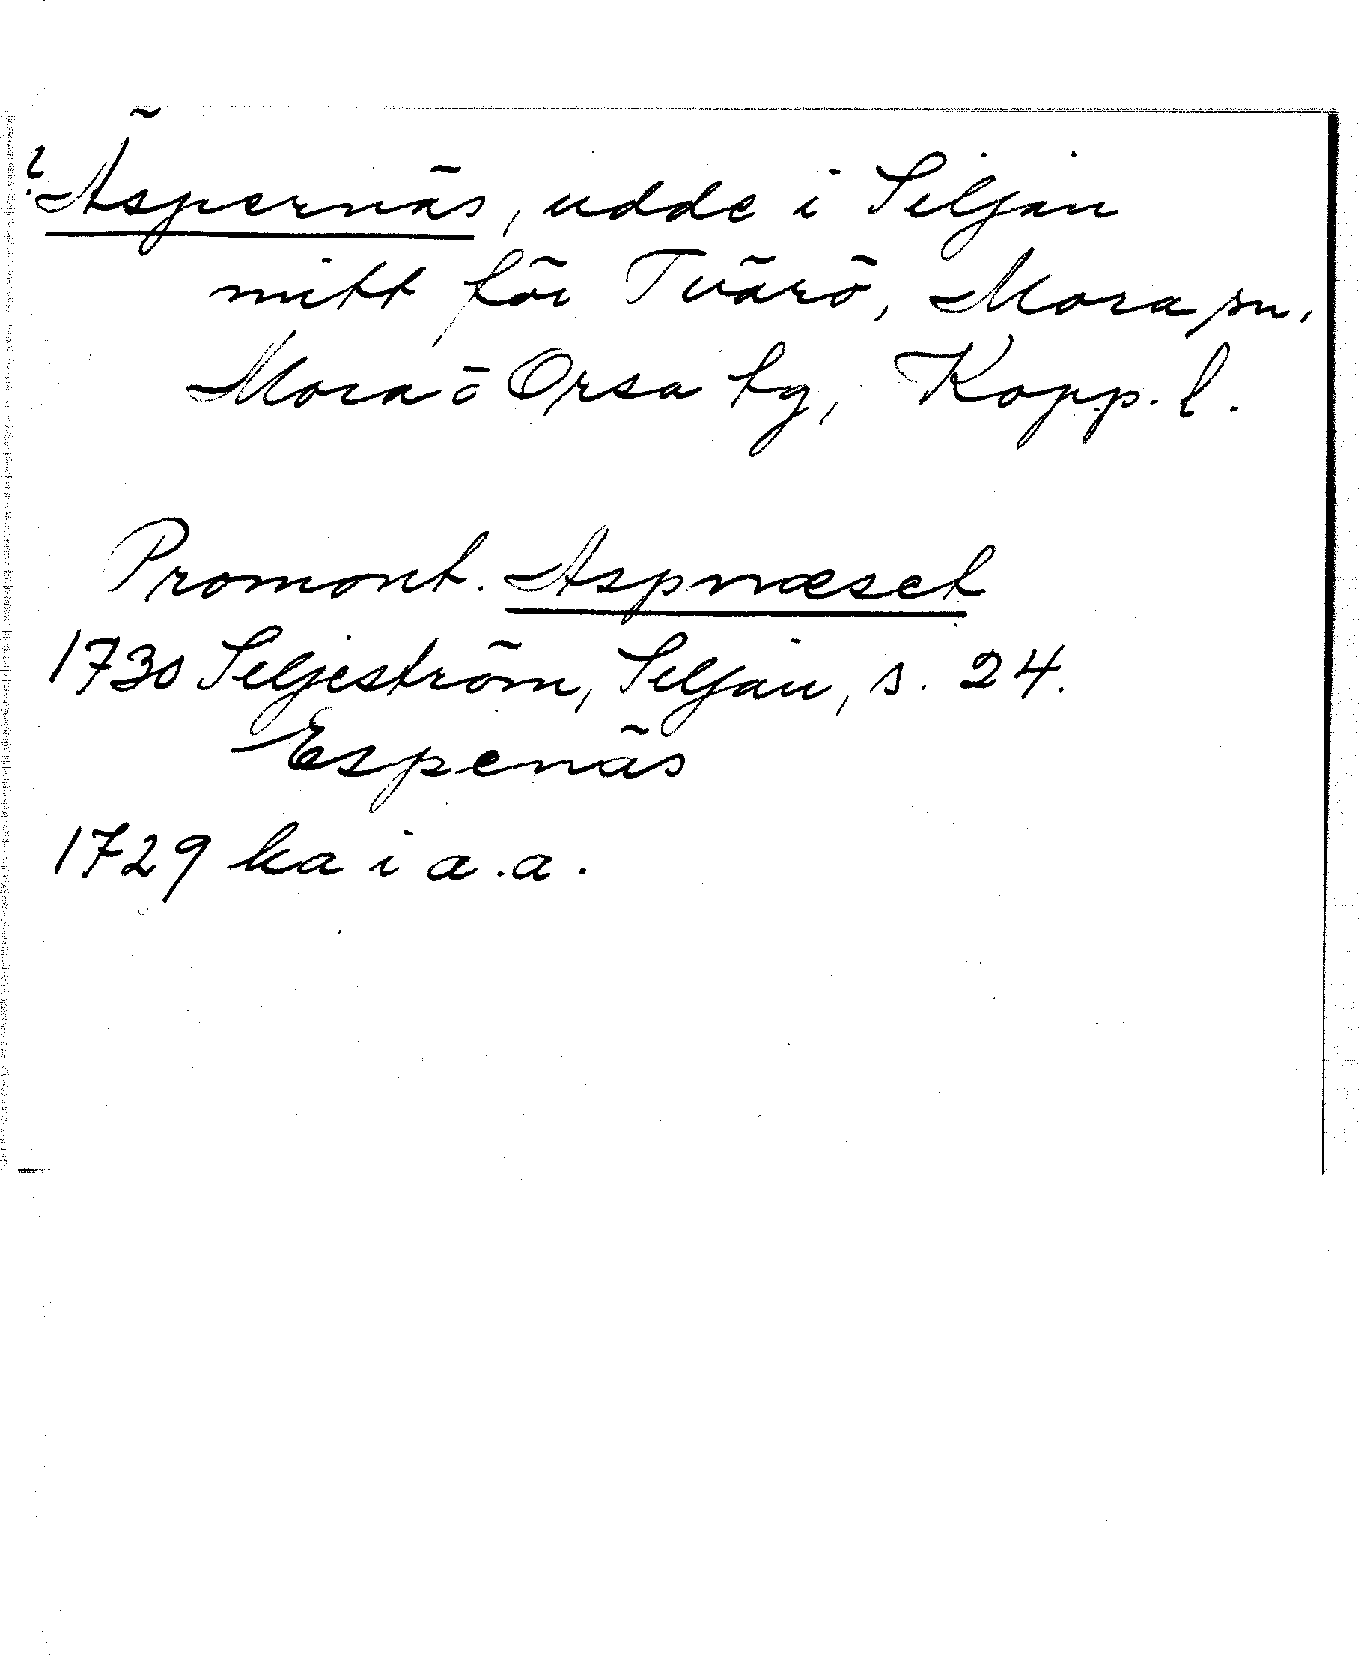 ? Äspernäs, udde i Siljan
mitt för Tvärö, Mora sn,
Mora o Orsa tg, Kopp. l.
Promont. Aspnæset
1730 Seljeström, Seljan, s. 24.
Espenäs
1729 ka i a.a.